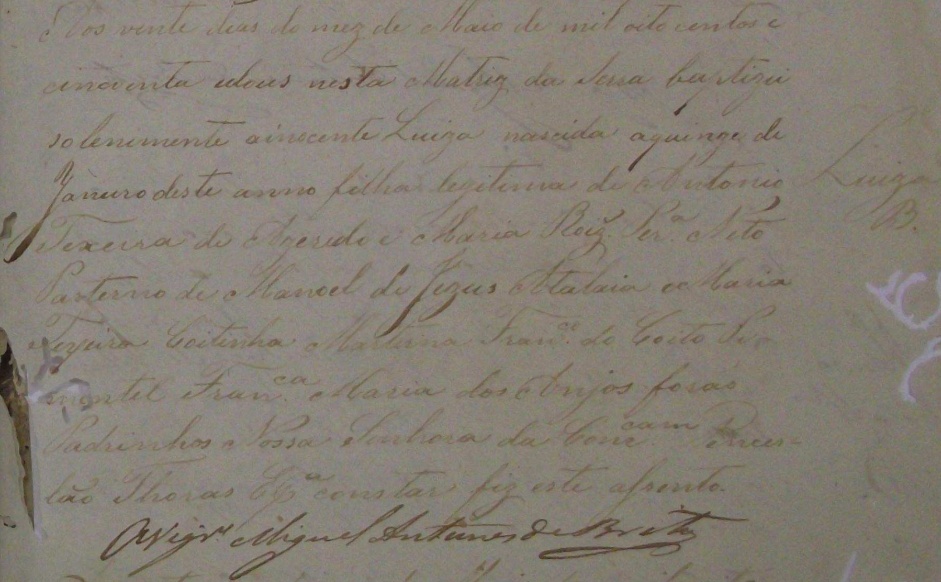 Aos vente dias do mez de Maio de mil oito centos e
cincoenta edous nesta Matriz da Serra baptizei
solenimente ainocente Luiza nascida aquinze de
Janeiro deste anno filha legitima de Antonio
Texeira de Azeredo e Maria Roiz. Per.ª Neto
Parterno de Manoel de Jezus Atalaia e Maria
Texeira Coitinha Marterna Fran.co do Coito Pi-
mentel Fran.ca Maria dos Anjos forão
Padrinhos Nossa Senhora da Concam
lão Thoras E pª constar fiz este assento.
O Vigr.º Miguel Antunes de Brito
Luiza
B.